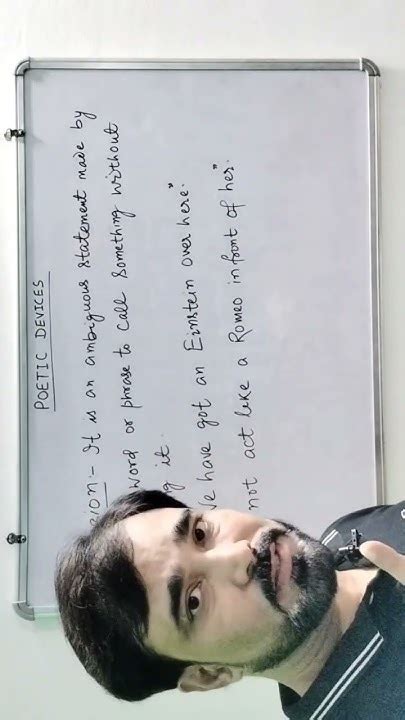 POETIC DEVICES
sion:- It is an ambiguous statement made by
word or phrase to call something without
g it.
We have got an Einstein over here"
not act like a Romeo infront of her".